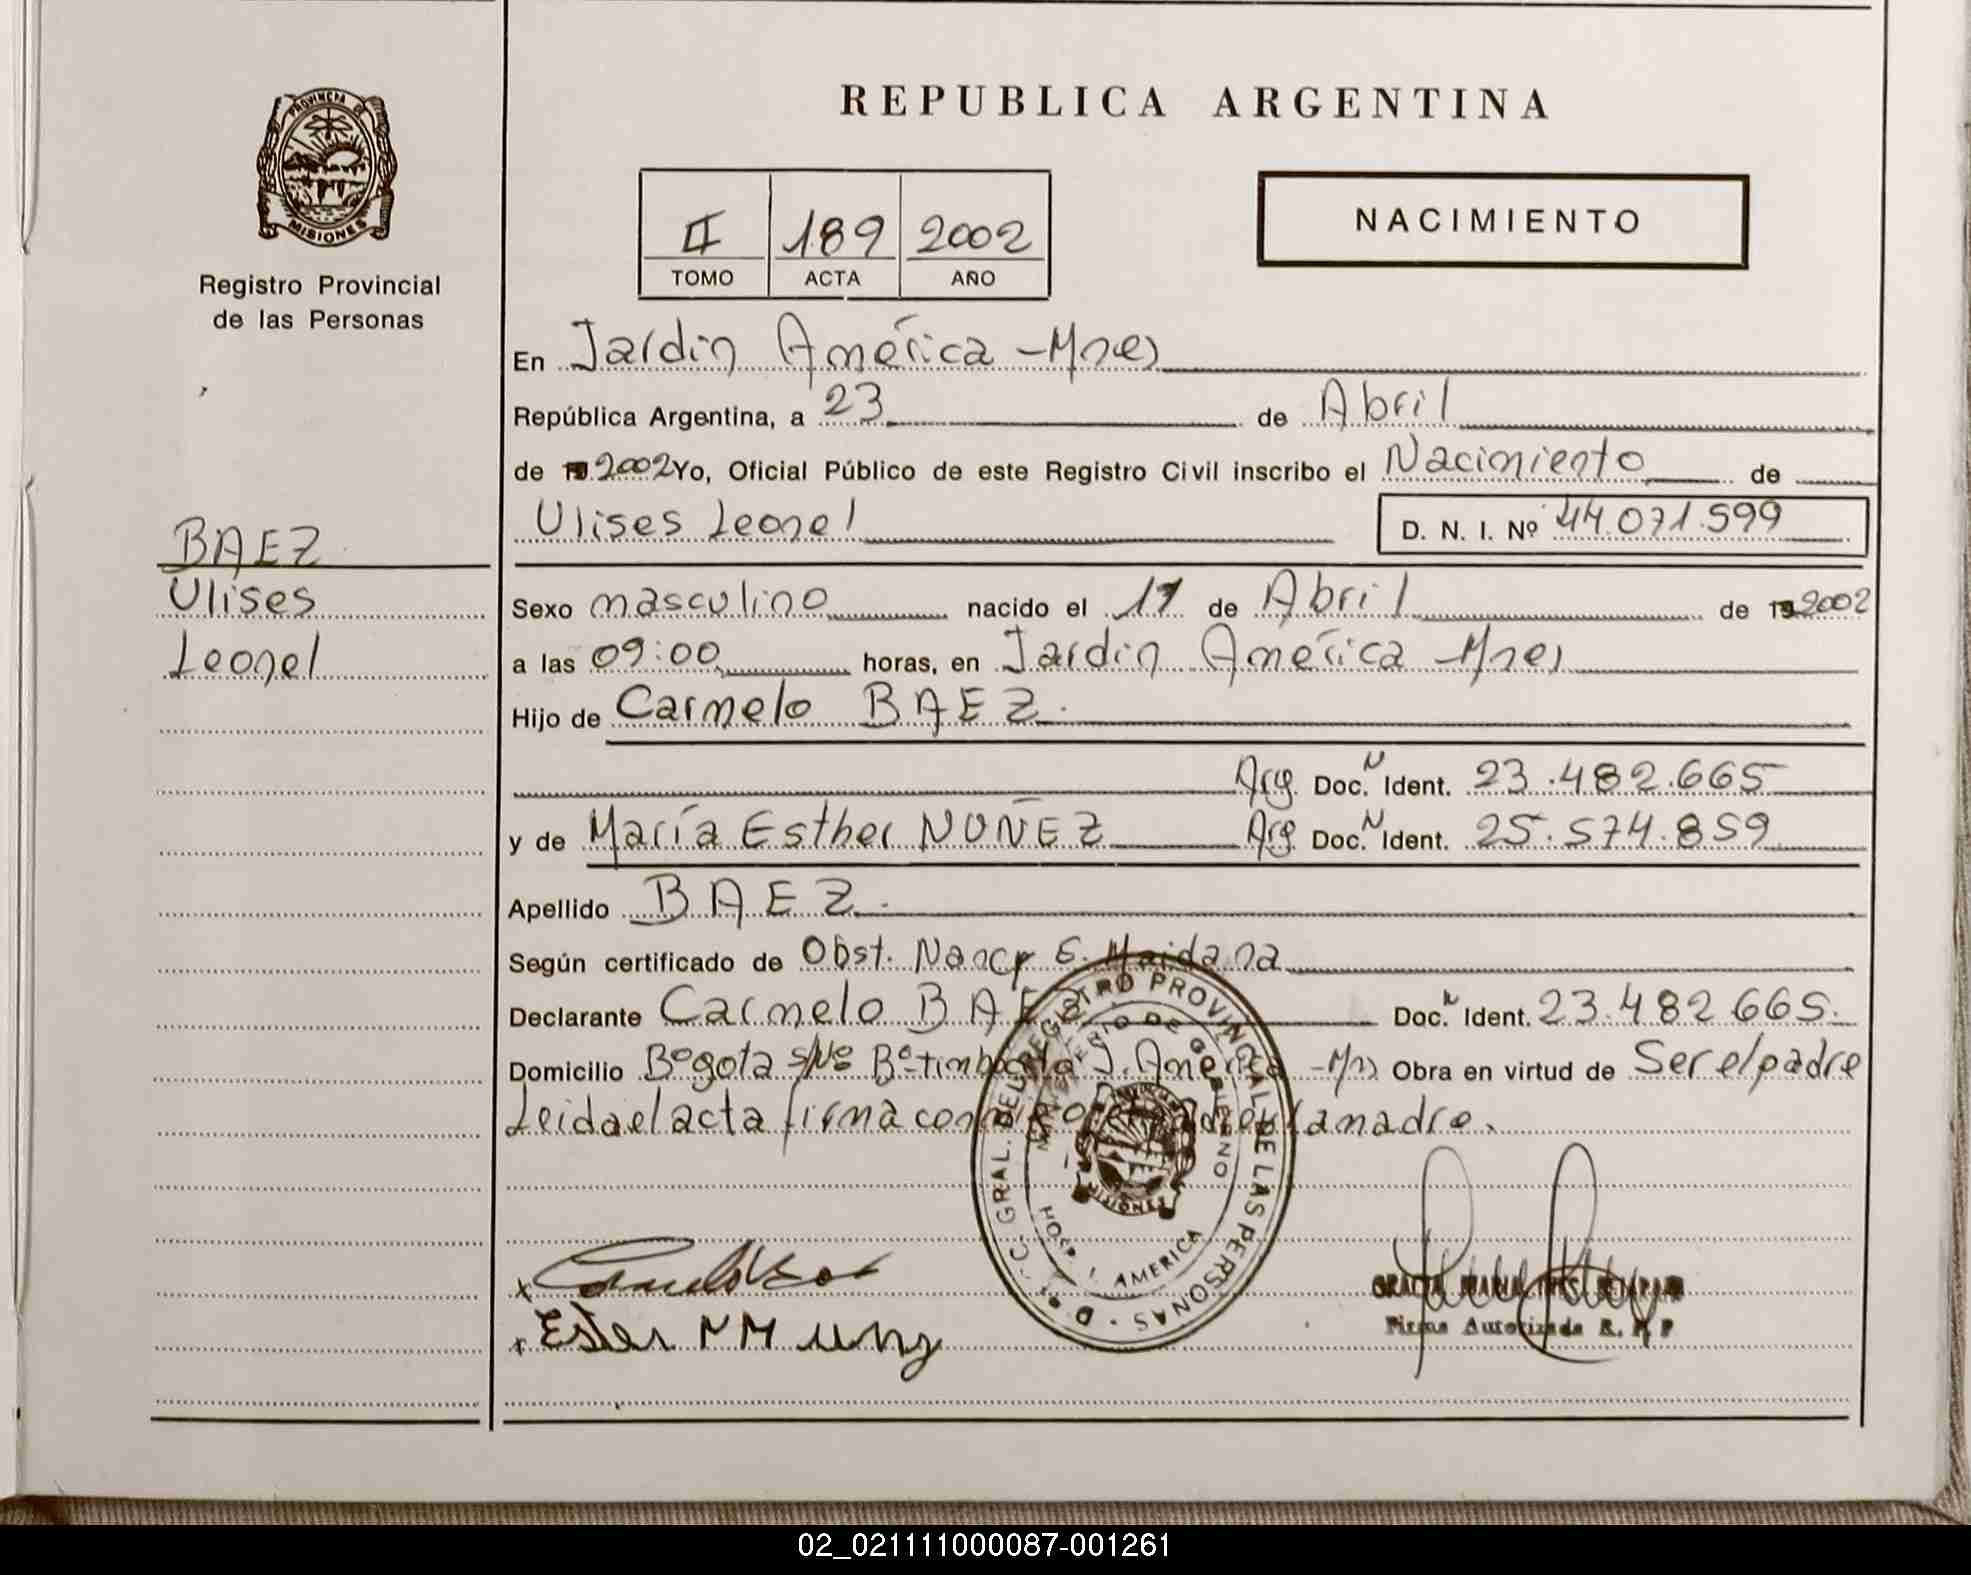 PROVINCIA DE
MISIONES
Registro Provincial
de las Personas
REPUBLICA ARGENTINA
II 189 2002
TOMO ACTA AÑO
NACIMIENTO
En Jardín América - Mnes
República Argentina, a 23 de Abril
de 19 2002 Yo, Oficial Público de este Registro Civil inscribo el Nacimiento de
Ulises Leonel D. N. I. Nº 44.071.599
BAEZ
Ulises
Leonel
Sexo masculino nacido el 17 de Abril de 19 2002
a las 09:00 horas, en Jardín América - Mnes
Hijo de Carmelo BAEZ.
Arg. Doc. N Ident. 23.482.665
y de María Esther NUÑEZ Arg. Doc. N Ident. 25.574.859
Apellido BAEZ.
Según certificado de Obst. Nancy E. Maidana
Declarante Carmelo BAEZ Doc. N Ident. 23.482665.
Domicilio Bogota s/Nº Bº J. América - Mns Obra en virtud de Ser el padre
Leida el acta firma conmigo el padre y la madre.
D C. GRAL. DEL REGISTRO PROVINCIAL DE LAS PERSONAS
MINISTERIO DE GOBIERNO
MISIONES
HOSP. J. AMERICA
Ester
GRACIA MARIA INES
Firma Autorizada R. P. P
02_021111000087-001261